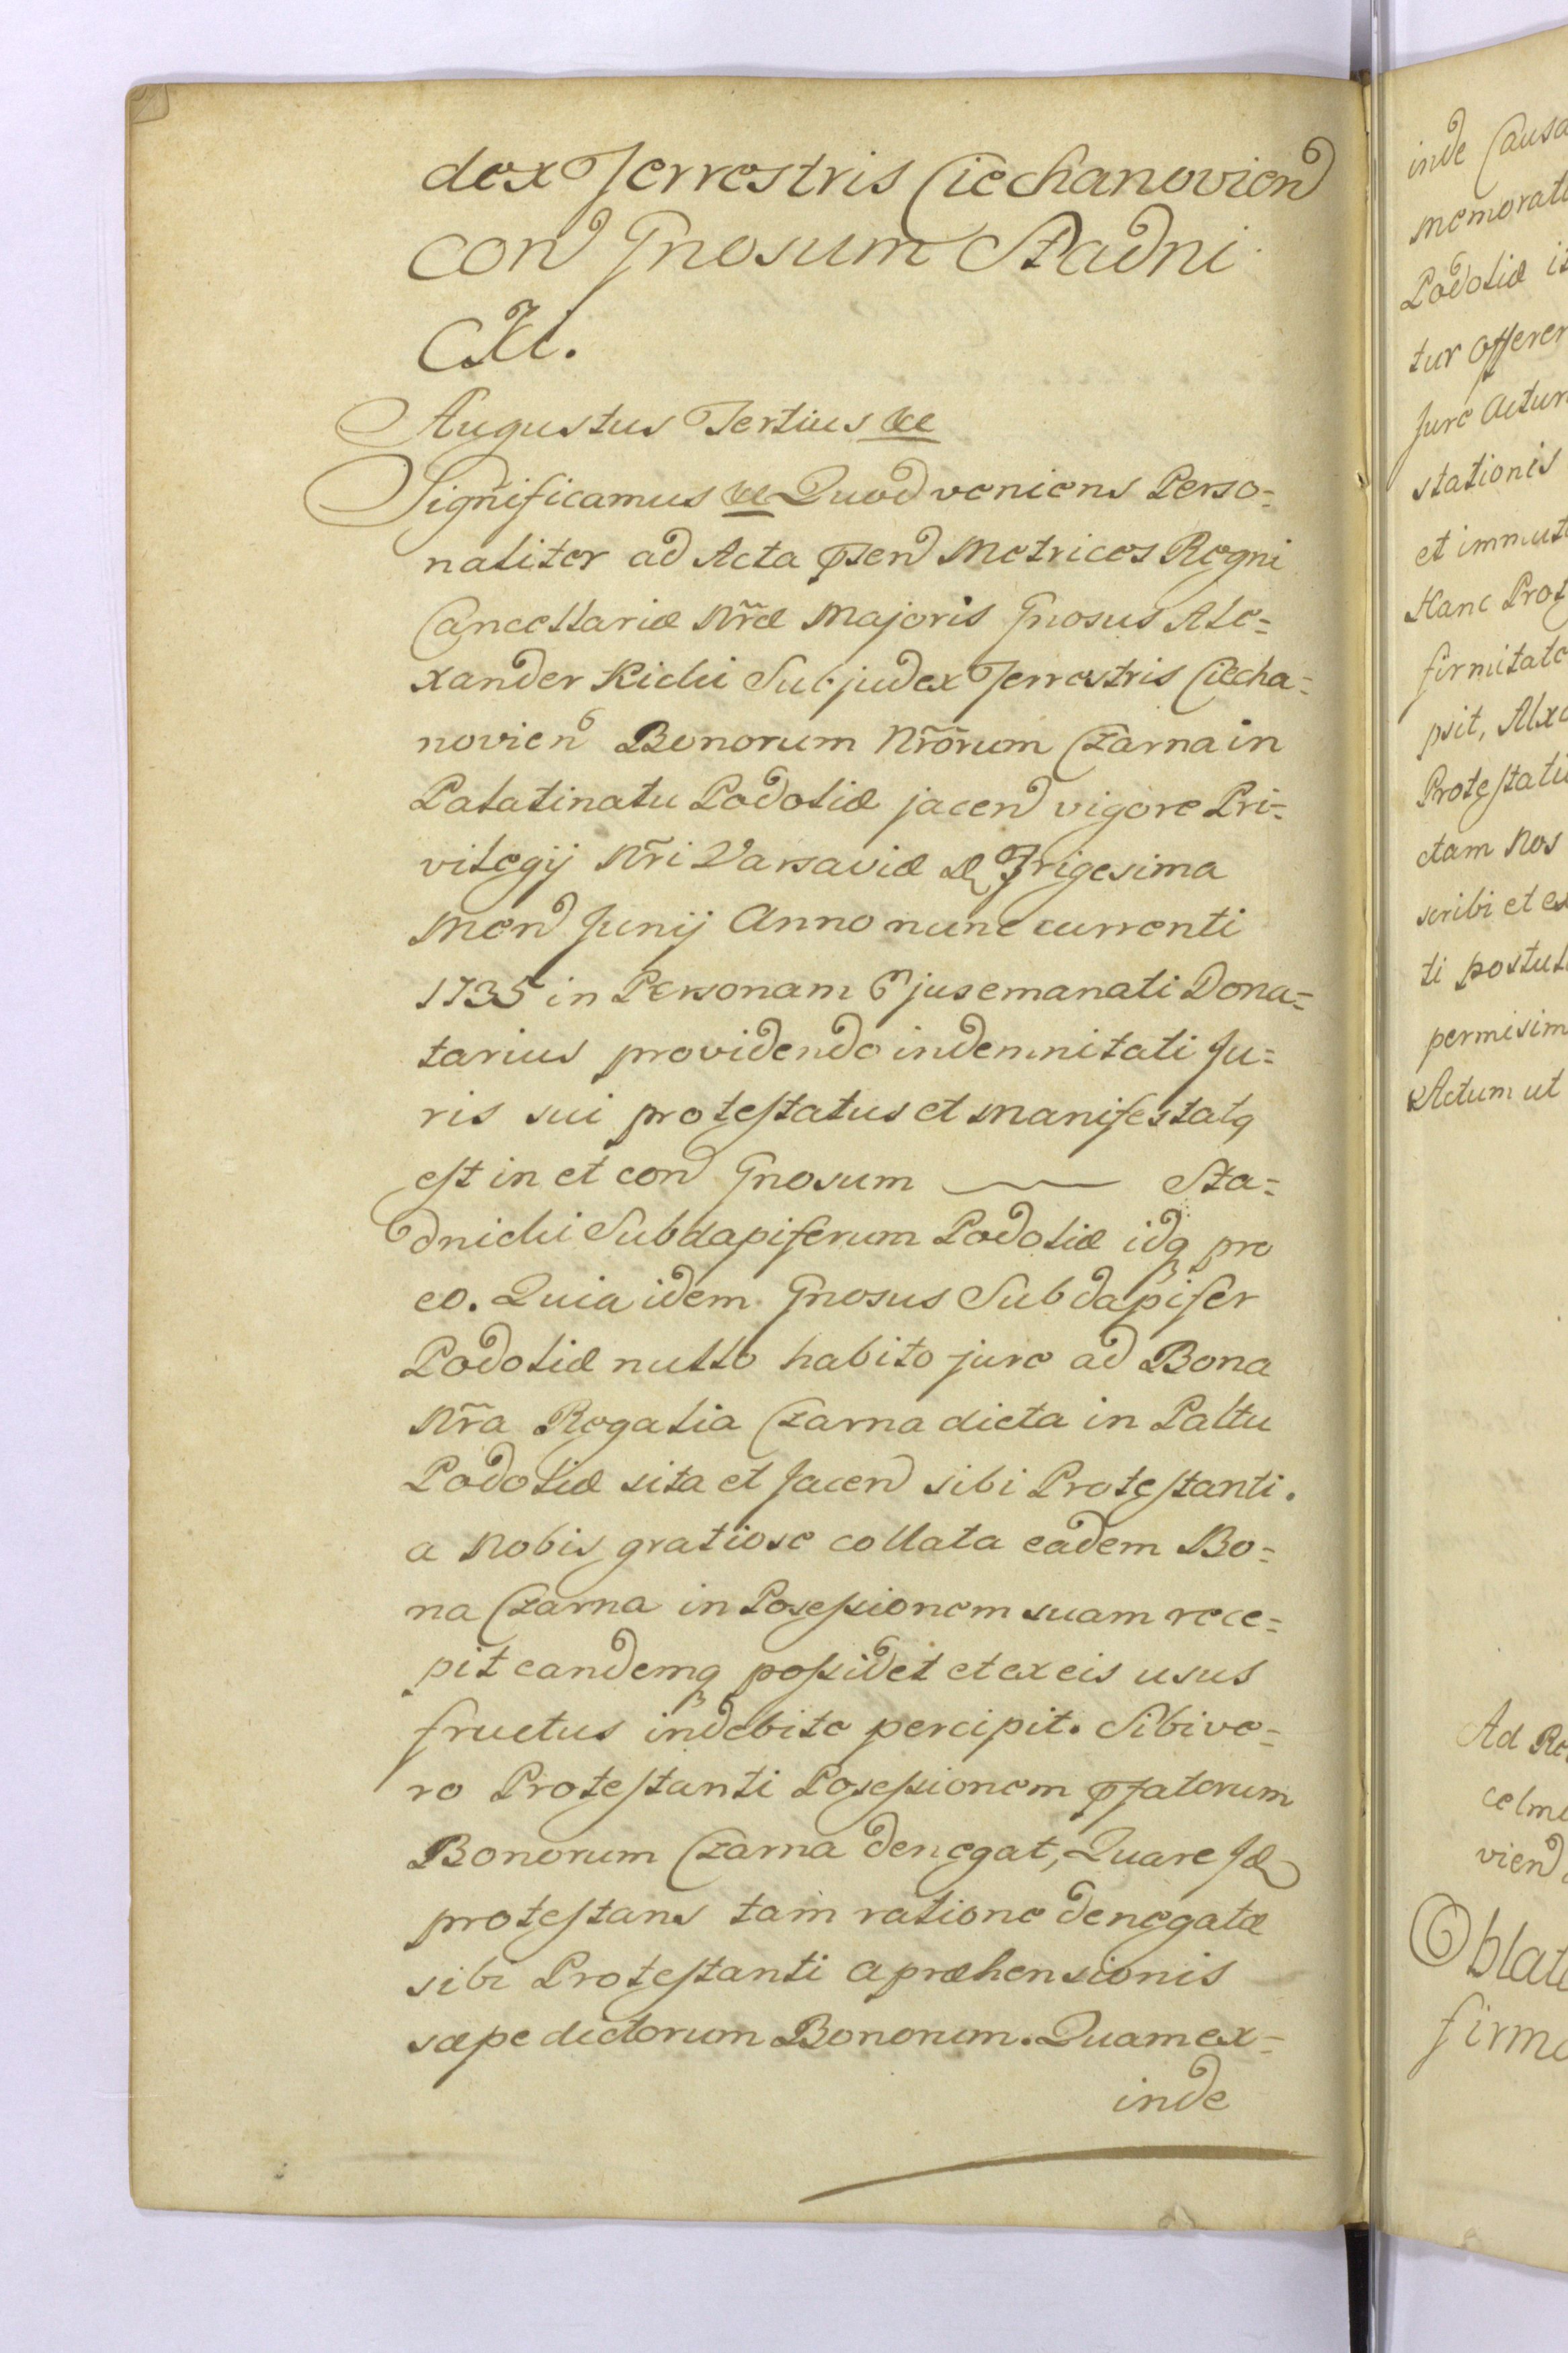 dex Terrestris Ciechanovien
con Gnosum Stadni
cki.
Augustus Tertius &c
Significamus &c Quod veniens Perso=
naliter ad Acta pñsen Metrices Regni
Cancellariæ Nr̃æ Majoris Gnosus Ale=
xander Kicki Subjudex Terrestris Ciecha=
novien Bonorum Nr̃orum Czarna in
Palatinatu Podoliæ jacen vigore Pri=
vilegij Nr̃i Varsaviæ d Trigesima
Men Junij Anno nunc currenti
1735 in Personam Ejus emanati Dona=
tarius providendo indemnitati Ju=
ris sui protestatus et manifestatq
est in et con Gnosum —— Sta=
dnicki Subdapiferum Podoliæ idq pro
eo. Quia idem Gnosus Subdapifer
Podoliæ nullo habito jure ad Bona
Nr̃a Regalia Czarna dicta in Paltu
Podoliæ sita et Jacen sibi Protestanti.
a Nobis gratiose collata eadem Bo=
na Czarna in Posessionem suam rece=
pit eandemq possidet et ex eis usus
fructus indebite percipit. Sibi ve=
ro Protestanti Posessionem pfatorum
Bonorum Czarna denegat, Quare Id
protestans tam ratione denegatæ
sibi Protestanti apræhensionis
sæpe dictorum Bonorum. Quam ex=
inde
inde Causa
memorat
Podoliæ
tur offerer
Jure actur
stationis
et immut
Hanc Prot
firmitate
psit, Alxa
Protestati
ctam Nos
scribi et es
ti postul
permisim
Actum ut
Ad Re
celmi
vien
Oblat
firma